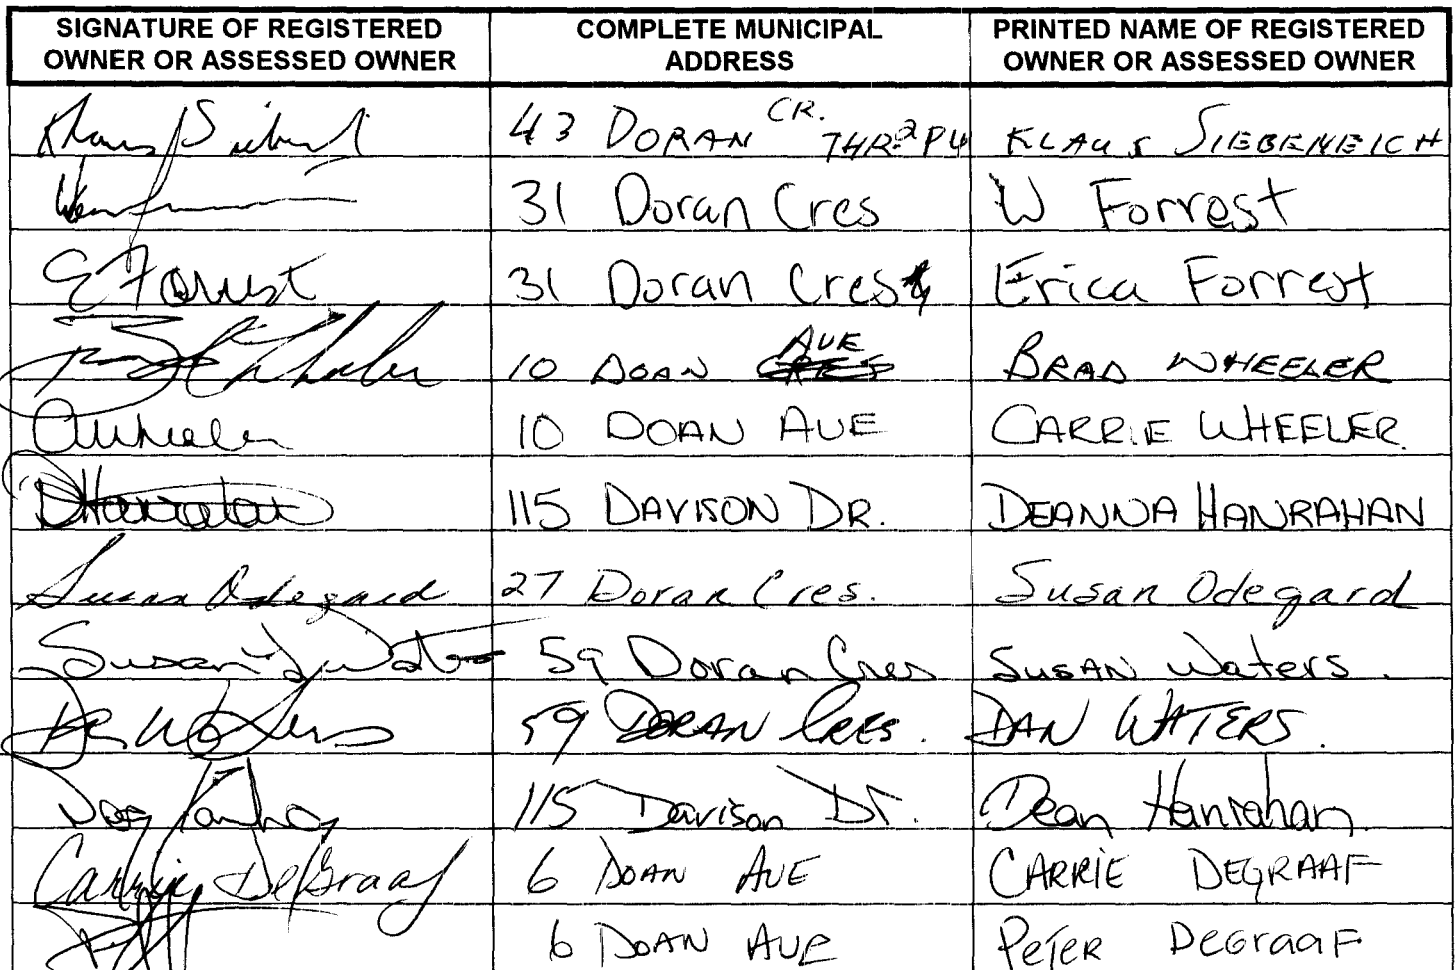 SIGNATURE OF REGISTERED OWNER OR ASSESSED OWNER
COMPLETE MUNICIPAL ADDRESS
PRINTED NAME OF REGISTERED OWNER OR ASSESSED OWNER
43 DORAN CR. KLAUS SIEBENEICH
31 Doran Cres W Forrest
E Forrest 31 Doran Cres Erica Forrest
10 DOAN AVE BRAD WHEELER
10 DOAN AVE CARRIE WHEELER
DHanrahan 115 DAVISON DR. DEANNA HANRAHAN
Susan Odegard 27 Doran Cres. Susan Odegard
Susan Waters 59 Doran Cres SUSAN Waters.
Dan Waters 59 DORAN CRES. DAN WATERS.
115 Davison Dr. Dean Hanrahan
Carrie DeGraaf 6 DOAN AVE CARRIE DEGRAAF
6 DOAN AVE PETER DEGRAAF